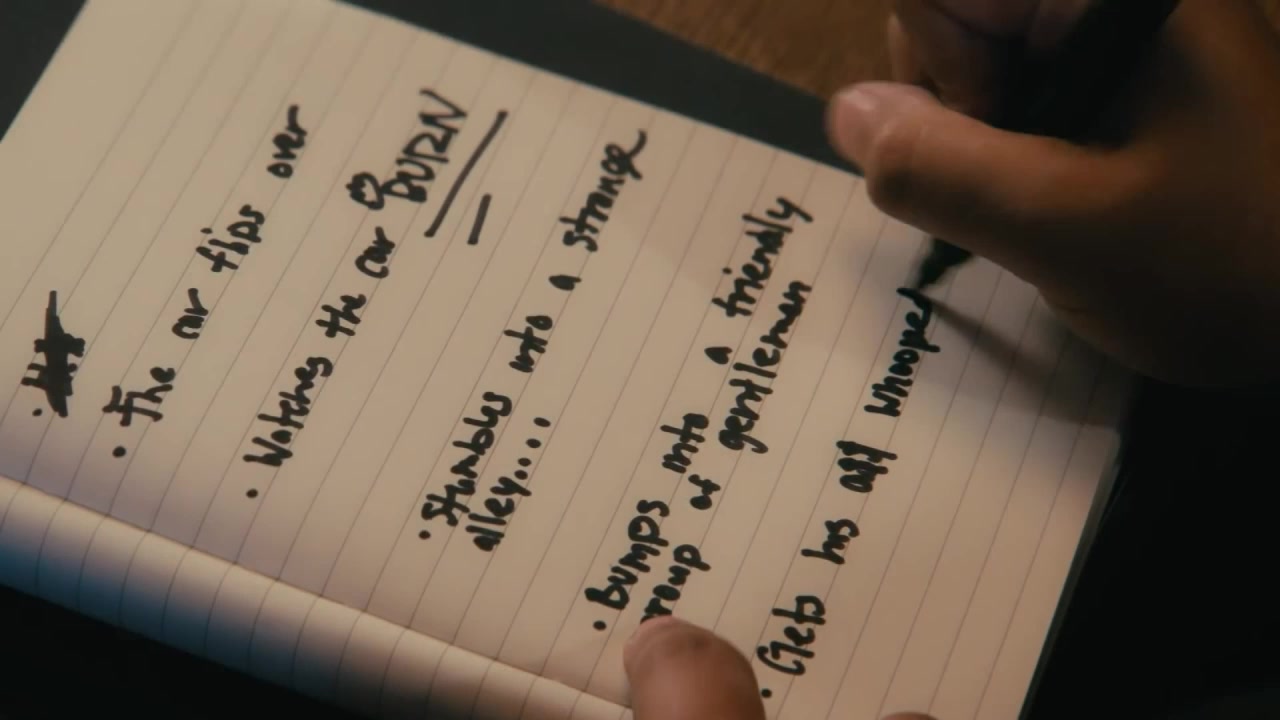 • The car flips over
• Watches the car BURN
• Stumbles into a strange
alley....
• Bumps into a friendly
group of gentleman
• Gets his a## whooped